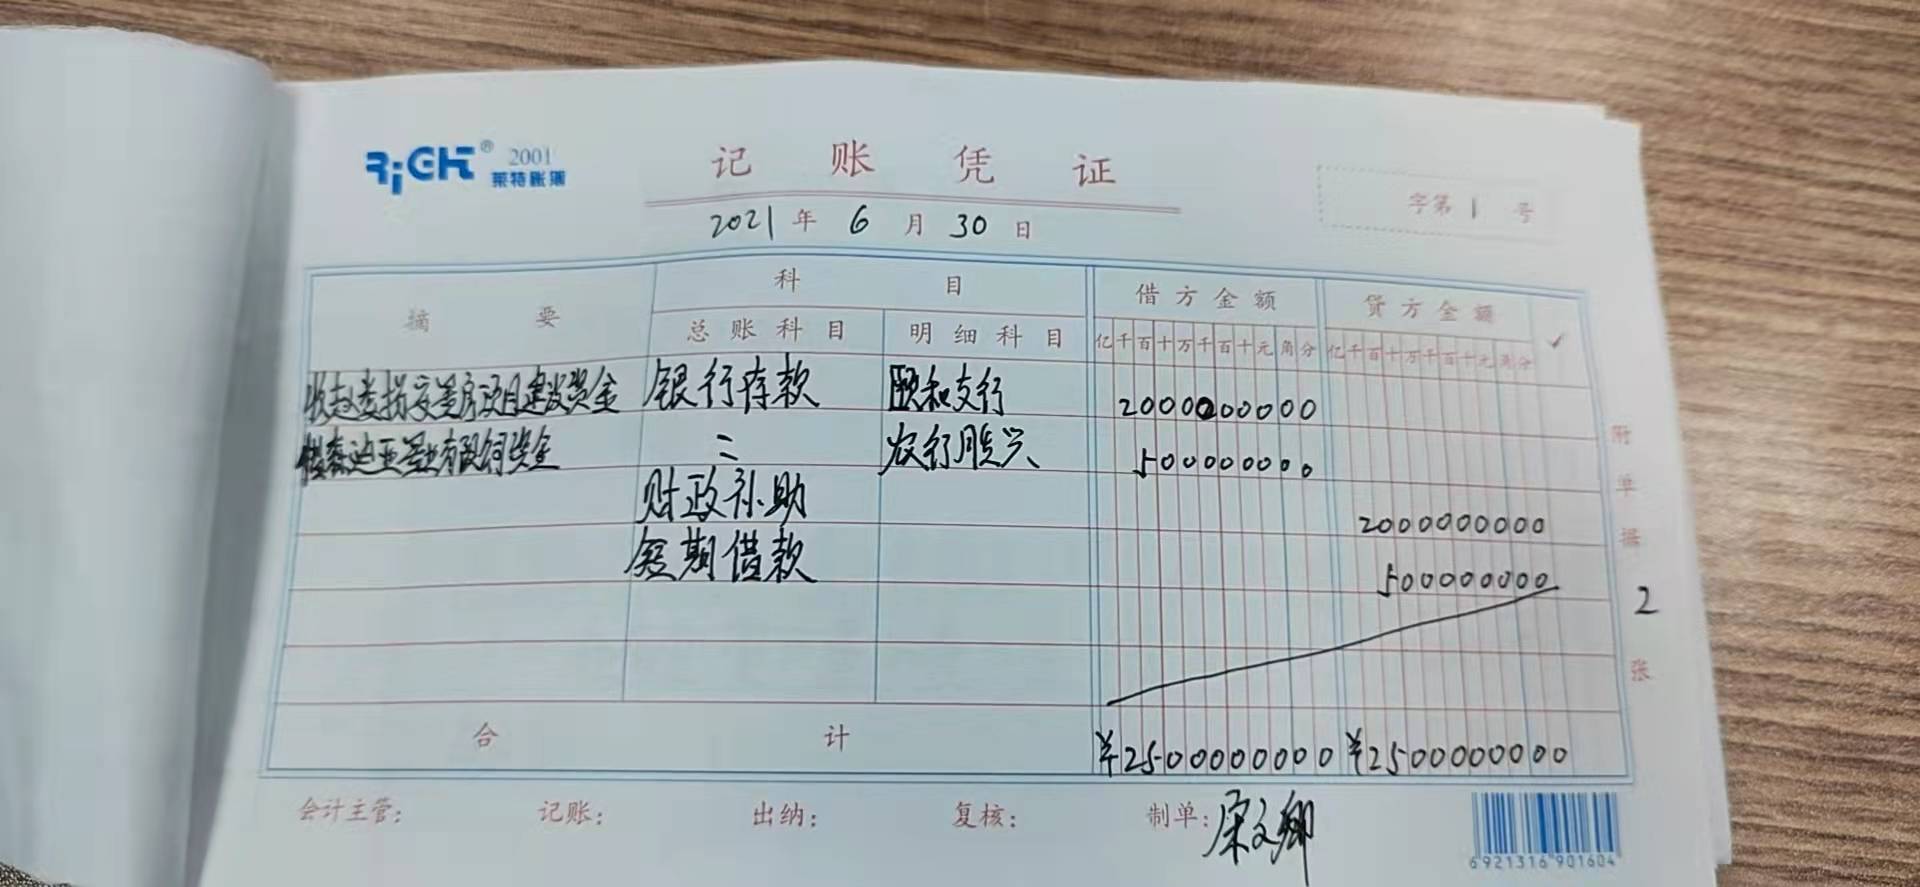 RiGHT® 2001
莱特账簿
记账凭证
2021年6月30日
字第1号
摘要 科目 借方金额 贷方金额 ✓
总账科目 明细科目 亿千百十万千百十元角分 亿千百十万千百十元角分
收赵娄拐安置房项目建设资金 银行存款 颐和支行 2000000000
森迪亚置业有限公司资金 〃 农行胜兴 500000000
财政补助 2000000000
短期借款 500000000
合计 ¥2500000000 ¥2500000000
附单据2张
会计主管: 记账: 出纳: 复核: 制单:宋文卿
6 921316 901604